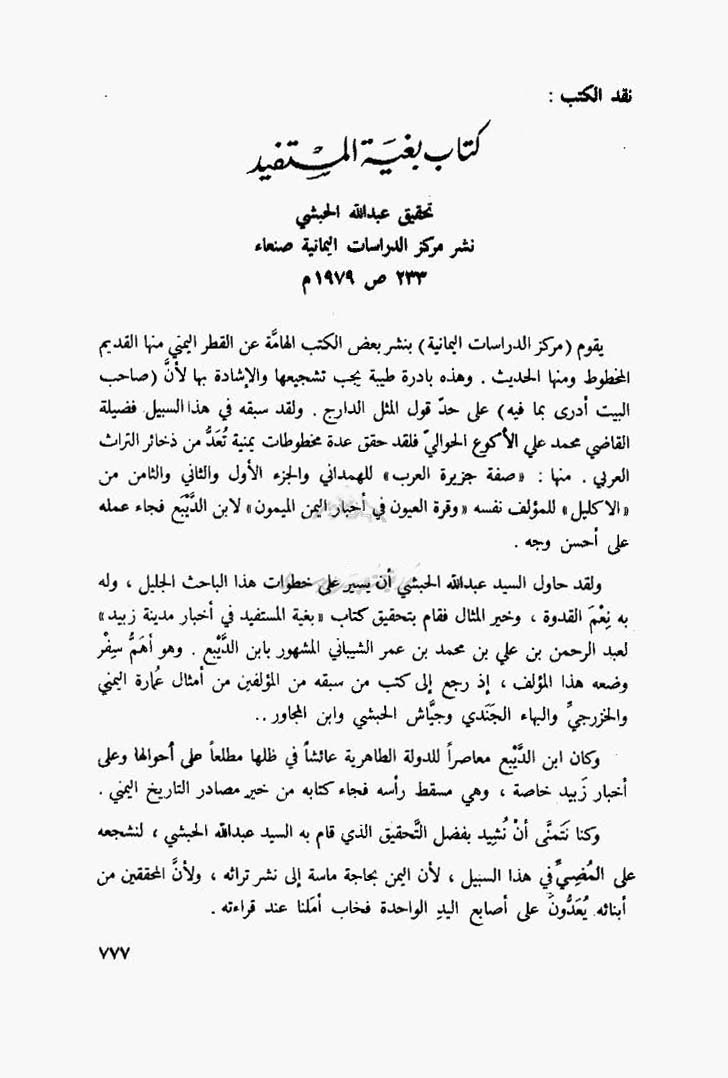 نقد الكتب :
كتاب بغية المستفيد
تحقيق عبدالله الحبشي
نشر مركز الدراسات اليمانية صنعاء
٢٣٣ ص ١٩٧٩ م
يقوم (مركز الدراسات اليمانية) بنشر بعض الكتب الهامَّة عن القطر اليمني منها القديم
المخطوط ومنها الحديث . وهذه بادرة طيبة يجب تشجيعها والإشادة بها لأنَّ (صاحب
البيت أدرى بما فيه) على حدّ قول المثل الدارج . ولقد سبقه في هذا السبيل فضيلة
القاضي محمد علي الأكوع الحواليّ فلقد حقق عدة مخطوطات يمنية تُعَدُّ من ذخائر التراث
العربي . منها : «صفة جزيرة العرب» للهمداني والجزء الأول والثاني والثامن من
«الاكليل» للمؤلف نفسه «وقرة العيون في أخبار اليمن الميمون» لابن الدَّيْبَع فجاء عمله
على أحسن وجه .
ولقد حاول السيد عبدالله الحبشي أن يسير على خطوات هذا الباحث الجليل ، وله
به نِعْمَ القدوة ، وخير المثال فقام بتحقيق كتاب «بغية المستفيد في أخبار مدينة زبيد»
لعبد الرحمن بن علي بن محمد بن عمر الشيباني المشهور بابن الدَّيْبع . وهو أهَمُّ سِفْر
وضعه هذا المؤلف ، إذ رجع إلى كتب من سبقه من المؤلفين من أمثال عُمارة اليمني
والخزرجيِّ والبهاء الجَنَدي وجيَّاش الحبشي وابن المجاور ..
وكان ابن الدَّيْبع معاصراً للدولة الطاهرية عائشاً في ظلها مطلعاً على أحوالها وعلى
أخبار زَبيد خاصة ، وهي مسقط رأسه فجاء كتابه من خير مصادر التاريخ اليمني .
وكنا نَتَمنَّى أنْ نُشِيد بفضل التَّحقيق الذي قام به السيد عبدالله الحبشي ، لنشجعه
على المُضِيِّ في هذا السبيل ، لأن اليمن بحاجة ماسة إلى نشر تراثه ، ولأنَّ المحققين من
أبنائه يُعَدُّونَ على أصابع اليدِ الواحدة فخاب أمَلنا عند قراءته .
٧٧٧